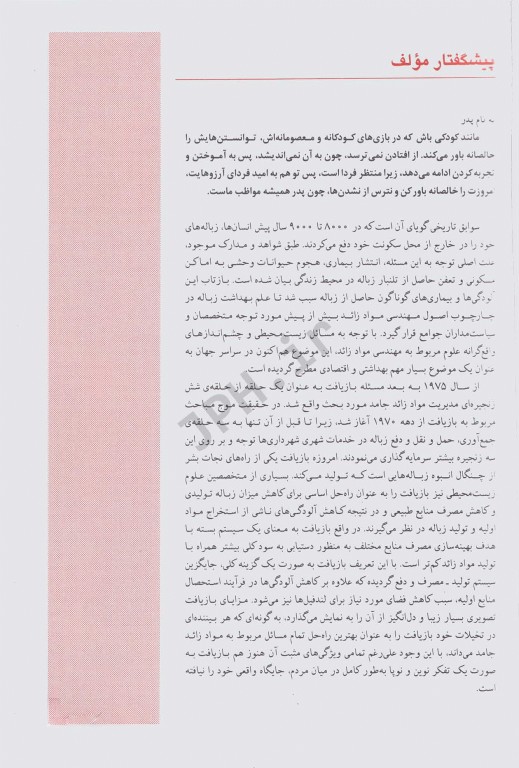 پیشگفتار مؤلف
به نام پدر
مانند کودکی باش که در بازی‌های کودکانه و معصومانه‌اش، توانستن‌هایش را
خالصانه باور می‌کند. از افتادن نمی‌ترسد، چون به آن نمی‌اندیشد، پس به آموختن و
تجربه کردن ادامه می‌دهد، زیرا منتظر فردا است، پس تو هم به امید فردای آرزوهایت،
امروزت را خالصانه باور کن و نترس از نشدن‌ها، چون پدر همیشه مواظب ماست.
سوابق تاریخی گویای آن است که در ۸۰۰۰ تا ۹۰۰۰ سال پیش انسان‌ها، زباله‌های
خود را در خارج از محل سکونت خود دفع می‌کردند. طبق شواهد و مدارک موجود،
علت اصلی توجه به این مسئله، انتشار بیماری، هجوم حیوانات وحشی به اماکن
مسکونی و تعفن حاصل از تلنبار زباله در محیط زندگی بیان شده است. بازتاب این
آلودگی‌ها و بیماری‌های گوناگون حاصل از زباله سبب شد تا علم بهداشت زباله در
چارچوب اصول مهندسی مواد زائد بیش از پیش مورد توجه متخصصان و
سیاست‌مداران جوامع قرار گیرد. با توجه به مسائل زیست‌محیطی و چشم‌اندازهای
واقع‌گرانه علوم مربوط به مهندسی مواد زائد، این موضوع هم‌اکنون در سراسر جهان به
عنوان یک موضوع بسیار مهم بهداشتی و اقتصادی مطرح گردیده است.
از سال ۱۹۷۵ به بعد مسئله بازیافت به عنوان یک حلقه از حلقه‌ی شش
زنجیره‌ای مدیریت مواد زائد جامد مورد بحث واقع شد. در حقیقت موج مباحث
مربوط به بازیافت از دهه ۱۹۷۰ آغاز شد، زیرا تا قبل از آن تنها به سه حلقه‌ی
جمع‌آوری، حمل و نقل و دفع زباله در خدمات شهری شهرداری‌ها توجه و بر روی این
سه زنجیره بیشتر سرمایه‌گذاری می‌نمودند. امروزه بازیافت یکی از راه‌های نجات بشر
از چنگال انبوه زباله‌هایی است که تولید می‌کند. بسیاری از متخصصین علوم
زیست‌محیطی نیز بازیافت را به عنوان راه‌حل اساسی برای کاهش میزان زباله تولیدی
و کاهش مصرف منابع طبیعی و در نتیجه کاهش آلودگی‌های ناشی از استخراج مواد
اولیه و تولید زباله در نظر می‌گیرند. در واقع بازیافت به معنای یک سیستم بسته با
هدف بهینه‌سازی مصرف منابع مختلف به منظور دستیابی به سود کلی بیشتر همراه با
تولید مواد زائد کم‌تر است. با این تعریف بازیافت به صورت یک گزینه کلی، جایگزین
سیستم تولید ـ مصرف و دفع گردیده که علاوه بر کاهش آلودگی‌ها در فرآیند استحصال
منابع اولیه، سبب کاهش فضای مورد نیاز برای لندفیل‌ها نیز می‌شود. مزایای بازیافت
تصویری بسیار زیبا و دل‌انگیز از آن را به نمایش می‌گذارد، به گونه‌ای که هر بیننده‌ای
در تخیلات خود بازیافت را به عنوان بهترین راه‌حل تمام مسائل مربوط به مواد زائد
جامد می‌داند، با این وجود علی‌رغم تمامی ویژگی‌های مثبت آن هنوز هم بازیافت به
صورت یک تفکر نوین و نوپا به‌طور کامل در میان مردم، جایگاه واقعی خود را نیافته
است.
JPH.ir